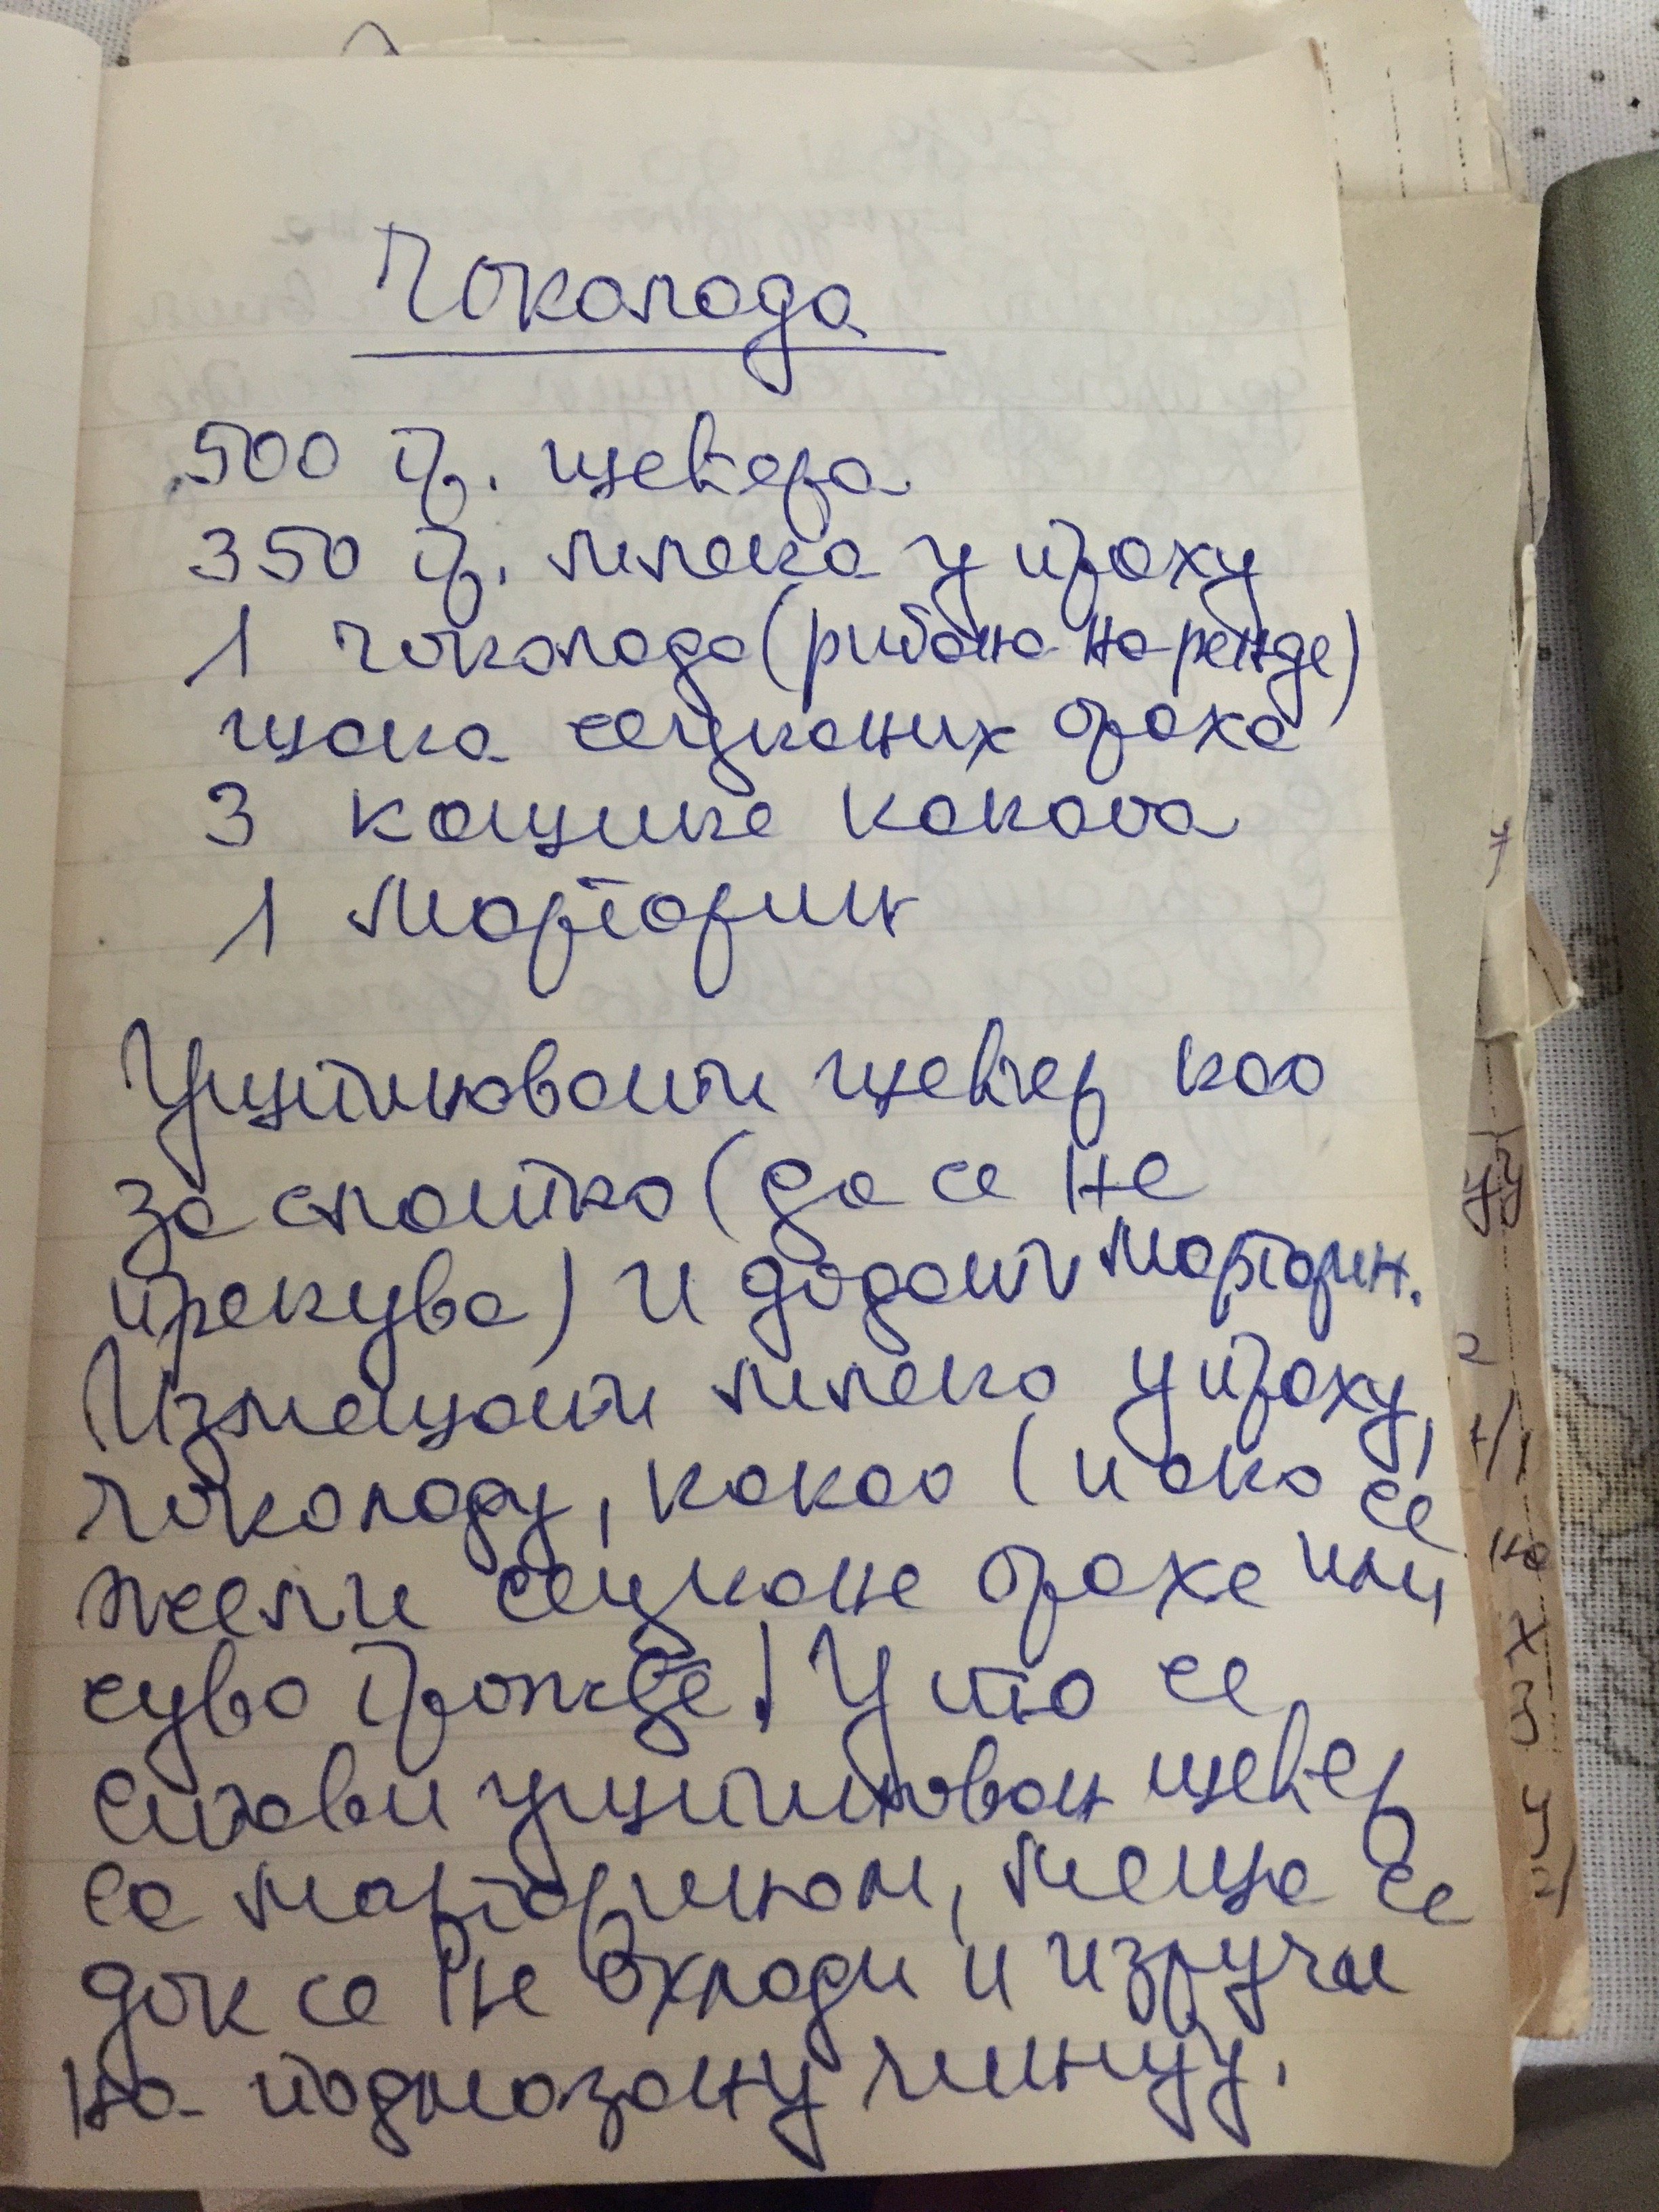 Чоколада
500 гр. шећера
350 гр. млека у праху
1 чоколада (рибана на ренде)
шака сецканих ораха
3 кашике какаоа
1 маргарин
Ушпиновати шећер као
за слатко (да се не
прекува) и додати маргарин.
Измешати млеко у праху,
чоколаду, какао (и ако се
жели сецкане орахе или
суво грожђе! У то се
стави ушпинован шећер
са маргарином, меша се
док се не охлади и изручи
на подмазану чинију.